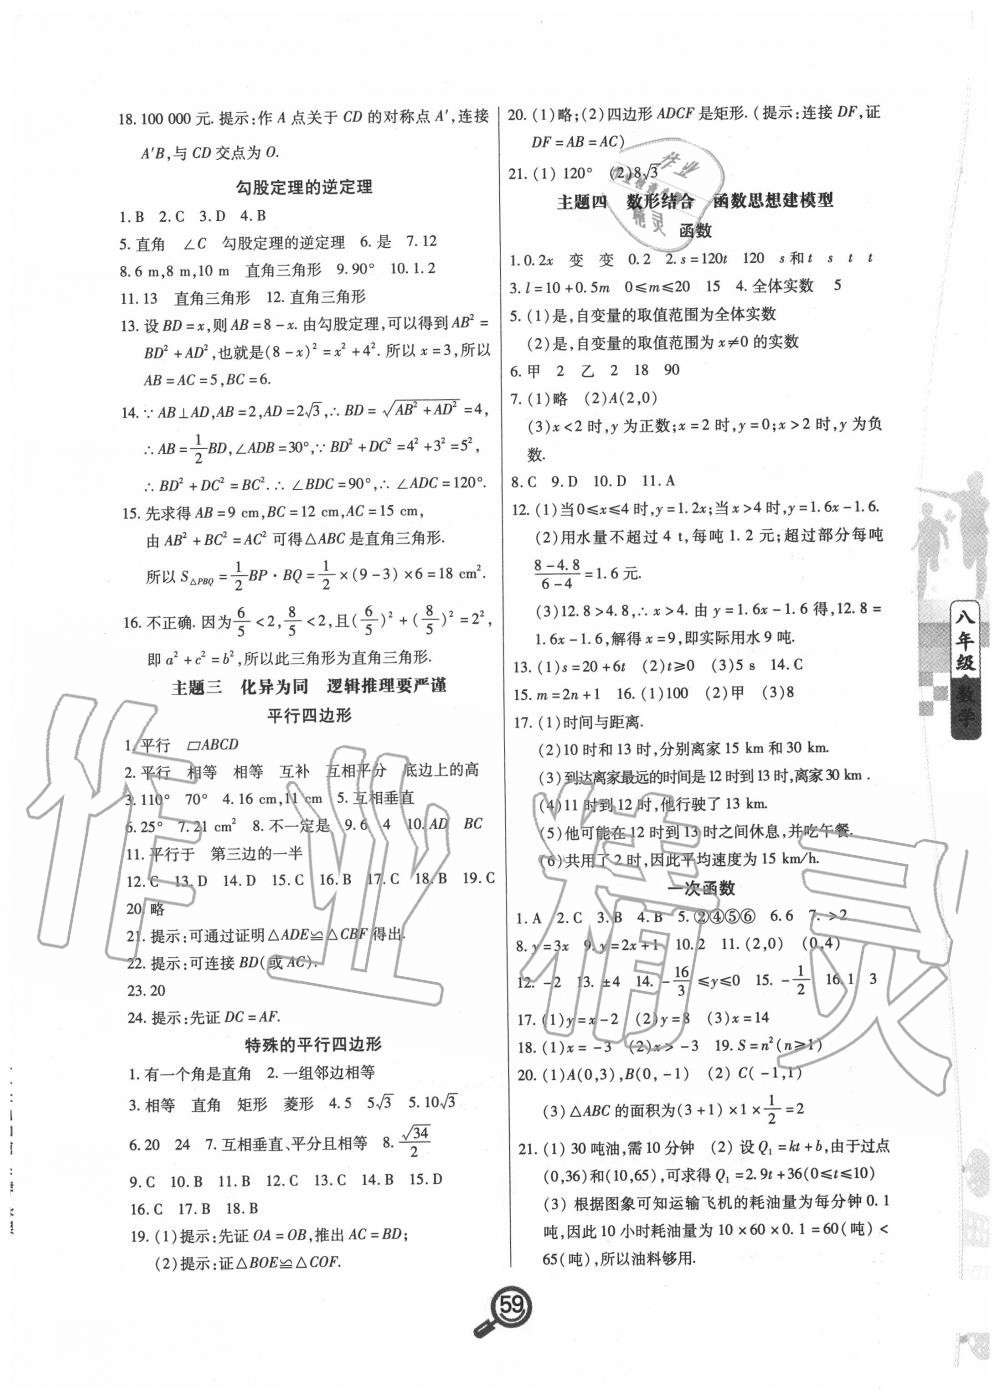 18. 100 000 元. 提示:作 A 点关于 CD 的对称点 A′,连接
A′B,与 CD 交点为 O.
勾股定理的逆定理
1. B 2. C 3. D 4. B
5. 直角 ∠C 勾股定理的逆定理 6. 是 7. 12
8. 6 m,8 m,10 m 直角三角形 9. 90° 10. 1. 2
11. 13 直角三角形 12. 直角三角形
13. 设 BD=x,则 AB=8-x. 由勾股定理,可以得到 AB²=
BD²+AD²,也就是(8-x)²=x²+4². 所以 x=3,所以
AB=AC=5,BC=6.
14. ∵ AB⊥AD,AB=2,AD=2√3,∴ BD=√(AB²+AD²)=4,
∴ AB=1/2BD,∠ADB=30°,∵ BD²+DC²=4²+3²=5²,
∴ BD²+DC²=BC². ∴ ∠BDC=90°,∴ ∠ADC=120°.
15. 先求得 AB=9 cm,BC=12 cm,AC=15 cm,
由 AB²+BC²=AC² 可得△ABC 是直角三角形.
所以 S△PBQ=1/2BP·BQ=1/2×(9-3)×6=18 cm².
16. 不正确. 因为6/5<2,8/5<2,且(6/5)²+(8/5)²=2²,
即 a²+c²=b²,所以此三角形为直角三角形.
主题三 化异为同 逻辑推理要严谨
平行四边形
1. 平行 ▱ABCD
2. 平行 相等 相等 互补 互相平分 底边上的高
3. 110° 70° 4. 16 cm,11 cm 5. 互相垂直
6. 25° 7. 21 cm² 8. 不一定是 9. 6 4 10. AD BC
11. 平行于 第三边的一半
12. C 13. D 14. D 15. C 16. B 17. C 18. B 19. C
20. 略
21. 提示:可通过证明△ADE≌△CBF 得出.
22. 提示:可连接 BD(或 AC).
23. 20
24. 提示:先证 DC=AF.
特殊的平行四边形
1. 有一个角是直角 2. 一组邻边相等
3. 相等 直角 矩形 菱形 4. 5 5√3 5. 10√3
6. 20 24 7. 互相垂直、平分且相等 8. √34/2
9. C 10. B 11. B 12. D 13. C 14. B 15. D
16. C 17. B 18. B
19. (1)提示:先证 OA=OB,推出 AC=BD;
(2)提示:证△BOE≌△COF.
20. (1)略;(2)四边形 ADCF 是矩形. (提示:连接 DF,证
DF=AB=AC)
21. (1) 120° (2)8√3
主题四 数形结合 函数思想建模型
函数
1. 0. 2x 变 变 0. 2 2. s=120t 120 s 和 t s t t
3. l=10+0. 5m 0≤m≤20 15 4. 全体实数 5
5. (1)是,自变量的取值范围为全体实数
(2)是,自变量的取值范围为 x≠0 的实数
6. 甲 2 乙 2 18 90
7. (1)略 (2)A(2,0)
(3)x<2 时,y 为正数;x=2 时,y=0;x>2 时,y 为负
数.
8. C 9. D 10. D 11. A
12. (1)当 0≤x≤4 时,y=1. 2x;当 x>4 时,y=1. 6x-1. 6.
(2)用水量不超过 4 t,每吨 1. 2 元;超过部分每吨
(8-4. 8)/(6-4)=1. 6 元.
(3)12. 8>4. 8,∴ x>4. 由 y=1. 6x-1. 6 得,12. 8=
1. 6x-1. 6,解得 x=9,即实际用水 9 吨.
13. (1)s=20+6t (2)t≥0 (3)5 s 14. C
15. m=2n+1 16. (1)100 (2)甲 (3)8
17. (1)时间与距离.
(2)10 时和 13 时,分别离家 15 km 和 30 km.
(3)到达离家最远的时间是 12 时到 13 时,离家 30 km.
(4)11 时到 12 时,他行驶了 13 km.
(5)他可能在 12 时到 13 时之间休息,并吃午餐.
(6)共用了 2 时,因此平均速度为 15 km/h.
一次函数
1. A 2. C 3. B 4. B 5. ②④⑤⑥ 6. 6 7. >2
8. y=3x 9. y=2x+1 10. 2 11. (2,0) (0,4)
12. -2 13. ±4 14. -16/3≤y≤0 15. -1/2 16. 1 3
17. (1)y=x-2 (2)y=8 (3)x=14
18. (1)x=-3 (2)x>-3 19. S=n²(n≥1)
20. (1)A(0,3),B(0,-1) (2) C(-1,1)
(3)△ABC 的面积为(3+1)×1×1/2=2
21. (1) 30 吨油,需 10 分钟 (2) 设 Q₁=kt+b,由于过点
(0,36)和(10,65),可求得 Q₁=2. 9t+36(0≤t≤10)
(3) 根据图象可知运输飞机的耗油量为每分钟 0. 1
吨,因此 10 小时耗油量为 10×60×0. 1=60(吨)<
65(吨),所以油料够用.
八年级
数学
59
作业精灵